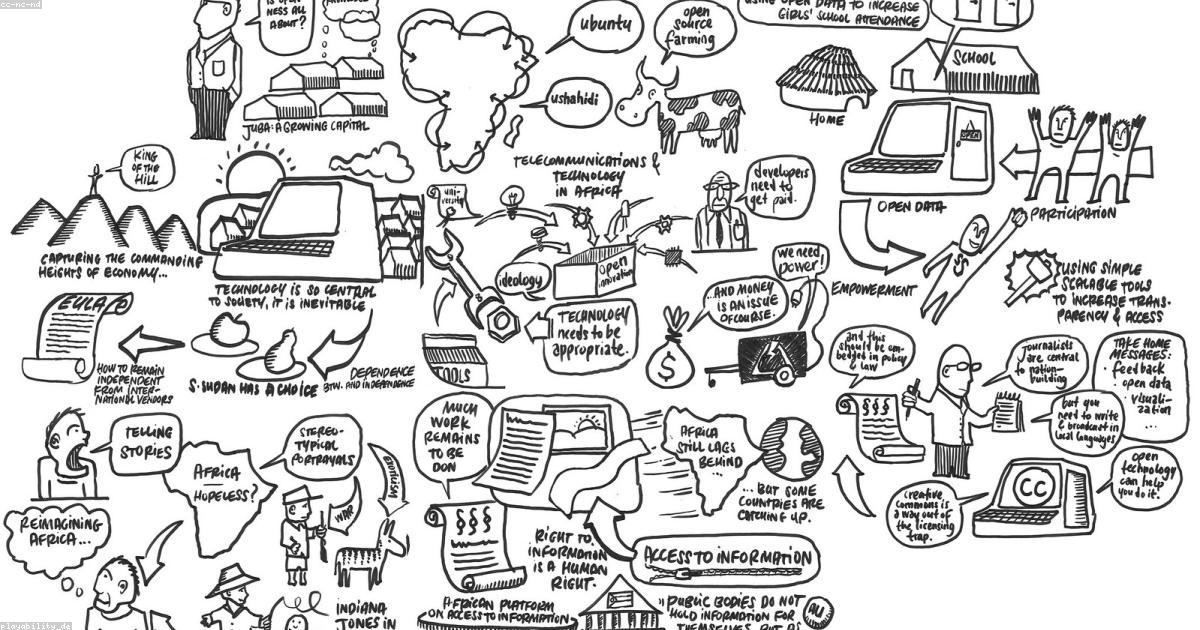 cc-nc-nd
IS OPEN
NESS ALL
ABOUT?
JUBA: A GROWING CAPITAL
ubuntu
open
source
farming
ushahidi
USING OPEN DATA TO INCREASE
GIRLS' SCHOOL ATTENDANCE
SCHOOL
HOME
OPEN
OPEN DATA
PARTICIPATION
EMPOWERMENT
USING SIMPLE
SCALABLE TOOLS
TO INCREASE TRANS-
PARENCY & ACCESS
KING
OF THE
HILL
CAPTURING THE COMMANDING
HEIGHTS OF ECONOMY...
TECHNOLOGY IS SO CENTRAL
TO SOCIETY, IT IS INEVITABLE
TELECOMMUNICATIONS &
TECHNOLOGY
IN AFRICA
uni-
versity
ideology
open
innovation
developers
need to
get paid.
we need
power!
...AND MONEY
IS AN ISSUE
OF COURSE.
$
TECHNOLOGY
needs to be
appropriate.
TOOLS
EULA
HOW TO REMAIN
INDEPENDENT
FROM INTER-
NATIONAL VENDORS
S. SUDAN HAS A CHOICE
DEPENDENCE
BTW. AND INDEPENDENCE
and this
should be em-
bedded in policy
& law
§§§
journalists
are central
to nation-
building
but you
need to write
& broadcast in
local languages
TAKE HOME
MESSAGES:
· feedback
· open data
· visuali-
zation
...
open
technology
can help
you do it.
CC
creative
commons is
a way out of
the licensing
trap.
TELLING
STORIES
AFRICA
HOPELESS?
STEREO-
TYPICAL
PORTRAYALS
EXOTICISM
WAR
REIMAGINING
AFRICA...
INDIANA
JONES IN
MUCH
WORK
REMAINS
TO BE
DON
§§§
RIGHT TO
INFORMATION
IS A HUMAN
RIGHT.
AFRICA
STILL LAGS
BEHIND
... BUT SOME
COUNTRIES ARE
CATCHING UP.
ACCESS TO INFORMATION
AFRICAN PLATFORM
ON ACCESS TO INFORMATION
"PUBLIC BODIES DO NOT
HOLD INFORMATION FOR
THEMSELVES, BUT AS
AU
playability_de